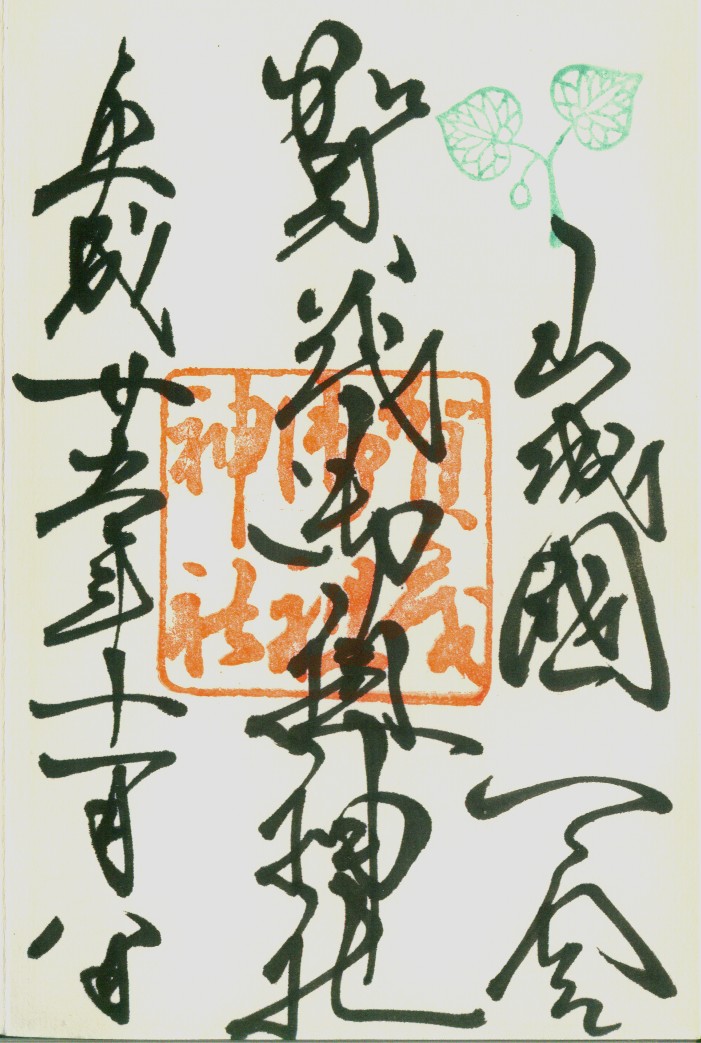 山城國一宮
賀茂御祖神社
平成廿五年十一月八日
賀茂
御祖
神社